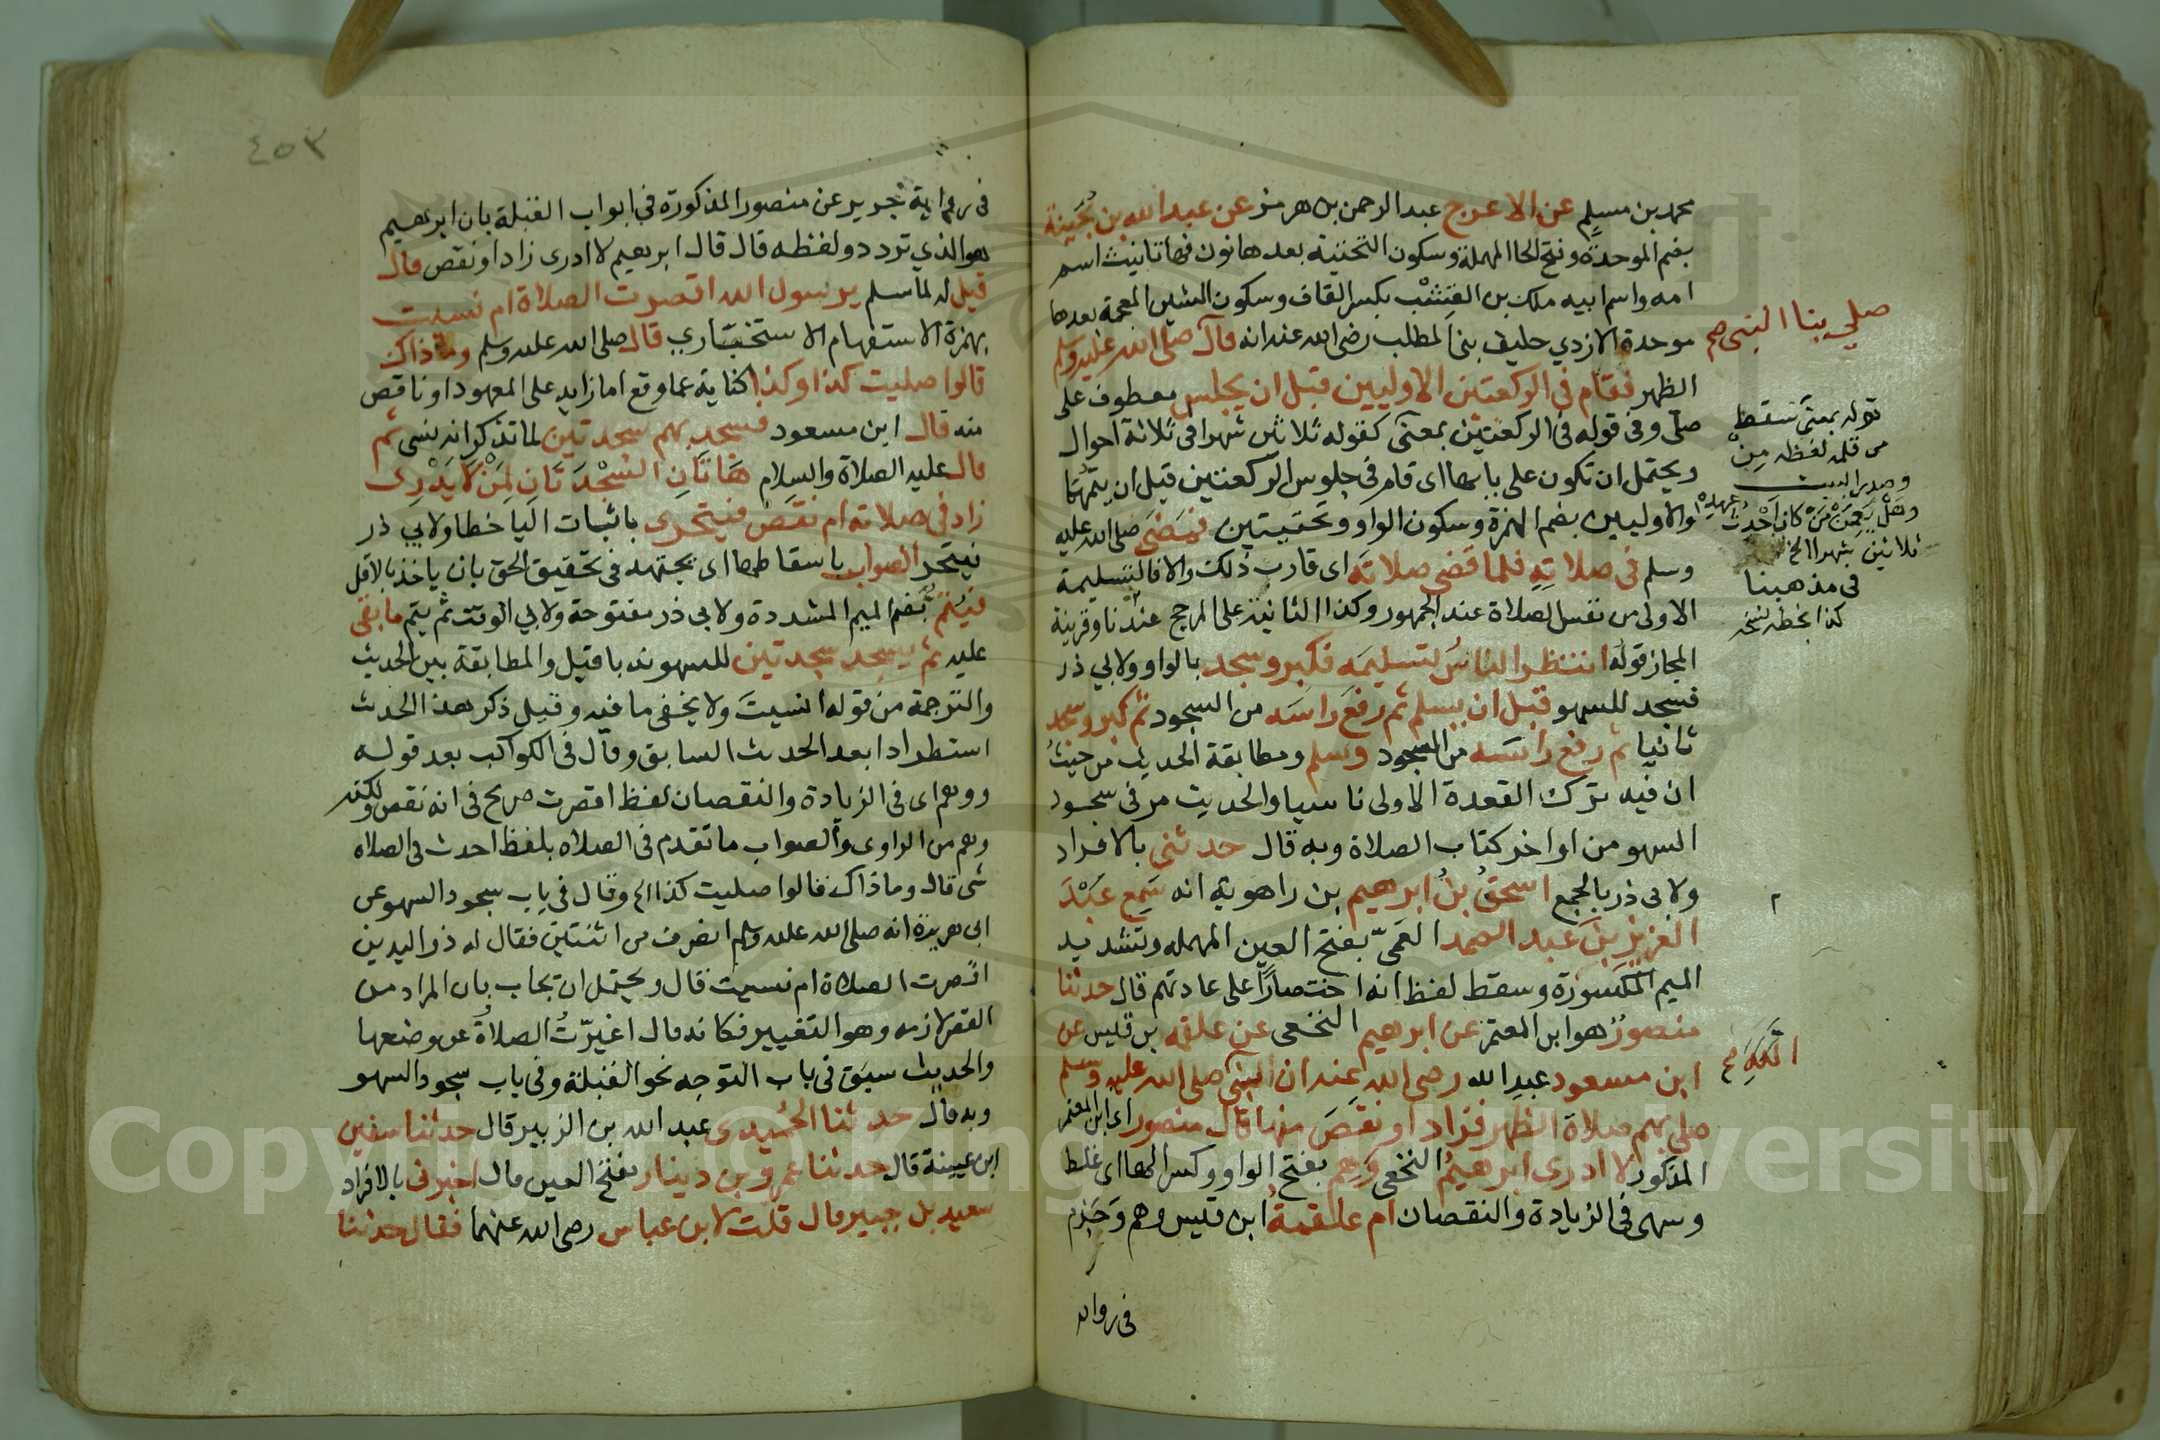 محمد بن مسلم عن الاعرج عبد الرحمن بن هرمز عن عبد الله بن بُحَينة
بضم الموحدة وفتح الحا المهملة وسكون التحتية بعدها نون فها تانيث اسم
امه واسم ابيه ملك بن القِشْب بكسر القاف وسكون الشين المعجمة بعدها
موحدة الازدي حليف بني المطلب رضي الله عنه انه قال صلى الله عليه وسلم
الظهر فقام في الركعتين الاوليين قبل ان يجلس معطوف على
صلى وفي قوله في الركعتين بمعنى كقوله ثلاثين شهرا في ثلاثة احوال
ويحتمل ان تكون على بابها اي قام في جلوس الركعتين قبل ان يتمها
والاوليين بضم الهمزة وسكون الواو وتحتيتين فمَضَى صلى الله عليه
وسلم في صلاتِهِ فلما قضى صلاتَه اي قارب ذلك والا فالتسليمة
الاولى من نفس الصلاة عند الجمهور وكذا الثانية على المرجح عندنا وقرينة
المجاز قوله انتظر الناسُ تسليمَه فكبر وسجد بالواو ولابي ذر
فسجد للسهو قبل ان يسلم ثم رفعَ راسَه من السجود ثم كبر وسجد
ثانيا ثم رفع راسَه من السجود وسلم ومطابقة الحديث من حيثُ
ان فيه ترك القعدة الاولى ناسيا والحديث مر في سجود
السهو من اواخر كتاب الصلاة وبه قال حدثني بالافراد
ولابي ذر بالجمع اسحقُ بنُ ابرهيم بن راهويه انه سَمِع عَبْدَ
العزيزِ بنَ عبد الصمد العَمِّيّ بفتح العين المهمله وتشديد
الميم المكسورة وسقط لفظ انه اختصارًا على عادتهم قال حدثنا
منصورٌ هو ابن المعتمر عن ابرهيم النخعي عن علقمه بن قيس عن
ابن مسعود عبدِ الله رضي الله عنه ان النبي صلى الله عليه وسلم
صلى بهم صلاةَ الظهر فزاد او نقَصَ منها قال منصور اي ابن المعتمر
المذكور لا ادري ابرهيمُ النخعي وَهِم بفتح الواو وكسر الها اي غلط
وسهى في الزيادة والنقصان ام علقمةُ ابن قيس وهم وَجَزم
في رواية
صلى بنا النبي صح
قوله بمعنى سقط
من قلمه لفظه مِنْ
وصدر البيت
وهَلْ يَعِمَنْ مَنْ كان اَحْدثُ عهدِه
ثلاثين شهرا الخ
في مذهبنا
كذا بخطه نسخه
في رواية جرير عن منصور المذكورة في ابواب القبلة بان ابرهيم
هو الذي تردد ولفظه قال قال ابرهيم لا ادري زاد او نقص قال
قيل له لما سلم يرسول الله اقصرت الصلاة ام نسيت
بهمزة الاستفهام الاستخباري قال صلى الله عليه وسلم وما ذاك
قالوا صليت كذا وكذا كناية عما وقع اما زايد على المعهود او ناقص
منه قال ابن مسعود فسجد بهم سجدتين لما تذكر انه نسي ثم
قال عليه الصلاة والسلام هَاتَانِ السَّجْدَتَانِ لِمَنْ لَا يَدْرِى
زاد في صلاته ام نقص فيتحرى باثبات اليا خطا ولابي ذر
فيتحر الصواب باسقاطها اي يجتهد في تحقيق الحق بان ياخذ بالاقل
فيُتمُّ بضم الميم المشددة ولابي ذر مفتوحة ولابي الوقت ثم يتم ما بقي
عليه ثم يسجد سجدتين للسهو ندبا قبل والمطابقة بين الحديث
والترجمة من قوله انسيتَ ولا يخفى ما فيه وقيل ذكر هذا الحديث
استطرادا بعد الحديث السابق وقال في الكواكب بعد قوله
ووهم اي في الزيادة والنقصان لفظ اقصرت صريح في انه نقص ولكنه
وهم من الراوي والصواب ما تقدم في الصلاه بلفظ احدث في الصلاه
شي قال وما ذاك فقالوا صليت كذا الخ وقال في باب سجود السهو عن
ابي هريرة انه صلى الله عليه وسلم انصرف من اثنتين فقال له ذو اليدين
اقصرت الصلاة ام نسيت فقال ويحتمل ان يجاب بان المراد من
القصر لازمه وهو التغيير فكانه قال اغيّرتُ الصلاةُ عن وضعها
والحديث سبق في باب التوجه نحو القبلة وفي باب سجود السهو
وبه قال حدثنا الحُمَيدي عبد الله بن الزبير قال حدثنا سفين
ابن عيينة قال حدثنا عمرو بن دينار بفتح العين قال اخبرني بالافراد
سعيد بن جبير قال قلت لابن عباس رضي الله عنهما فقال حدثنا
٤٥٣
Copyright © King Saud University